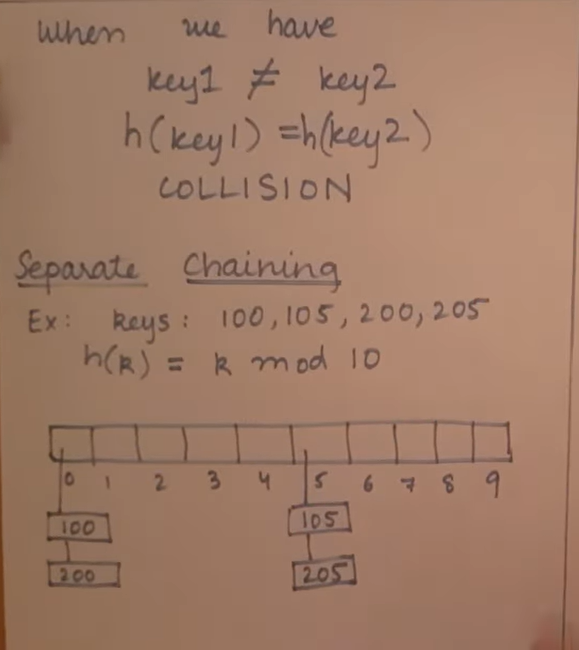 When we have
key1 ≠ key2
h(key1) = h(key2)
COLLISION
Separate Chaining
Ex: keys: 100, 105, 200, 205
h(k) = k mod 10
0 1 2 3 4 5 6 7 8 9
100 105
200 205